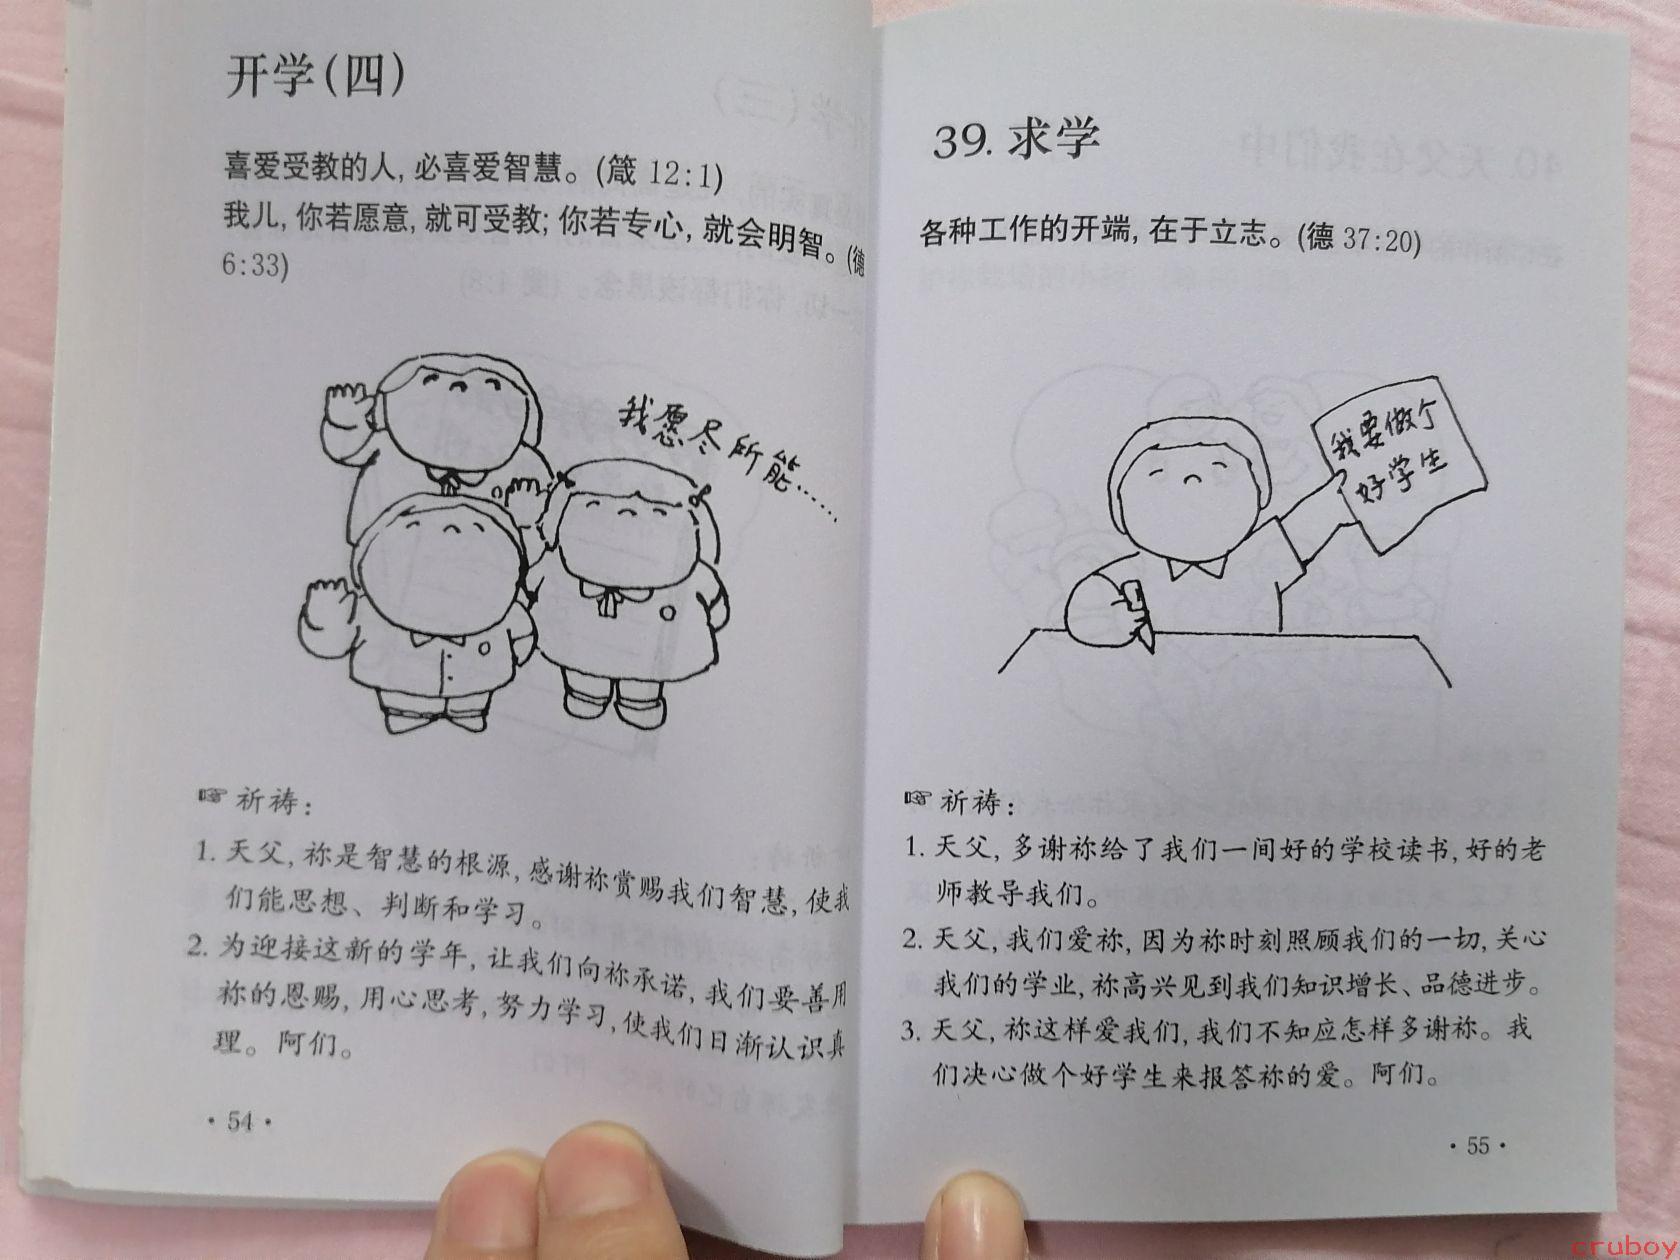 开学(四)
喜爱受教的人,必喜爱智慧。(箴 12:1)
我儿,你若愿意,就可受教;你若专心,就会明智。(德
6:33)
我愿尽所能……
☞ 祈祷:
1. 天父,祢是智慧的根源,感谢祢赏赐我们智慧,使我
们能思想、判断和学习。
2. 为迎接这新的学年,让我们向祢承诺,我们要善用
祢的恩赐,用心思考,努力学习,使我们日渐认识真
理。阿们。
· 54 ·
39. 求学
各种工作的开端,在于立志。(德 37:20)
我要做个
好学生
☞ 祈祷:
1. 天父,多谢祢给了我们一间好的学校读书,好的老
师教导我们。
2. 天父,我们爱祢,因为祢时刻照顾我们的一切,关心
我们的学业,祢高兴见到我们知识增长、品德进步。
3. 天父,祢这样爱我们,我们不知应怎样多谢祢。我
们决心做个好学生来报答祢的爱。阿们。
· 55 ·
cruboy